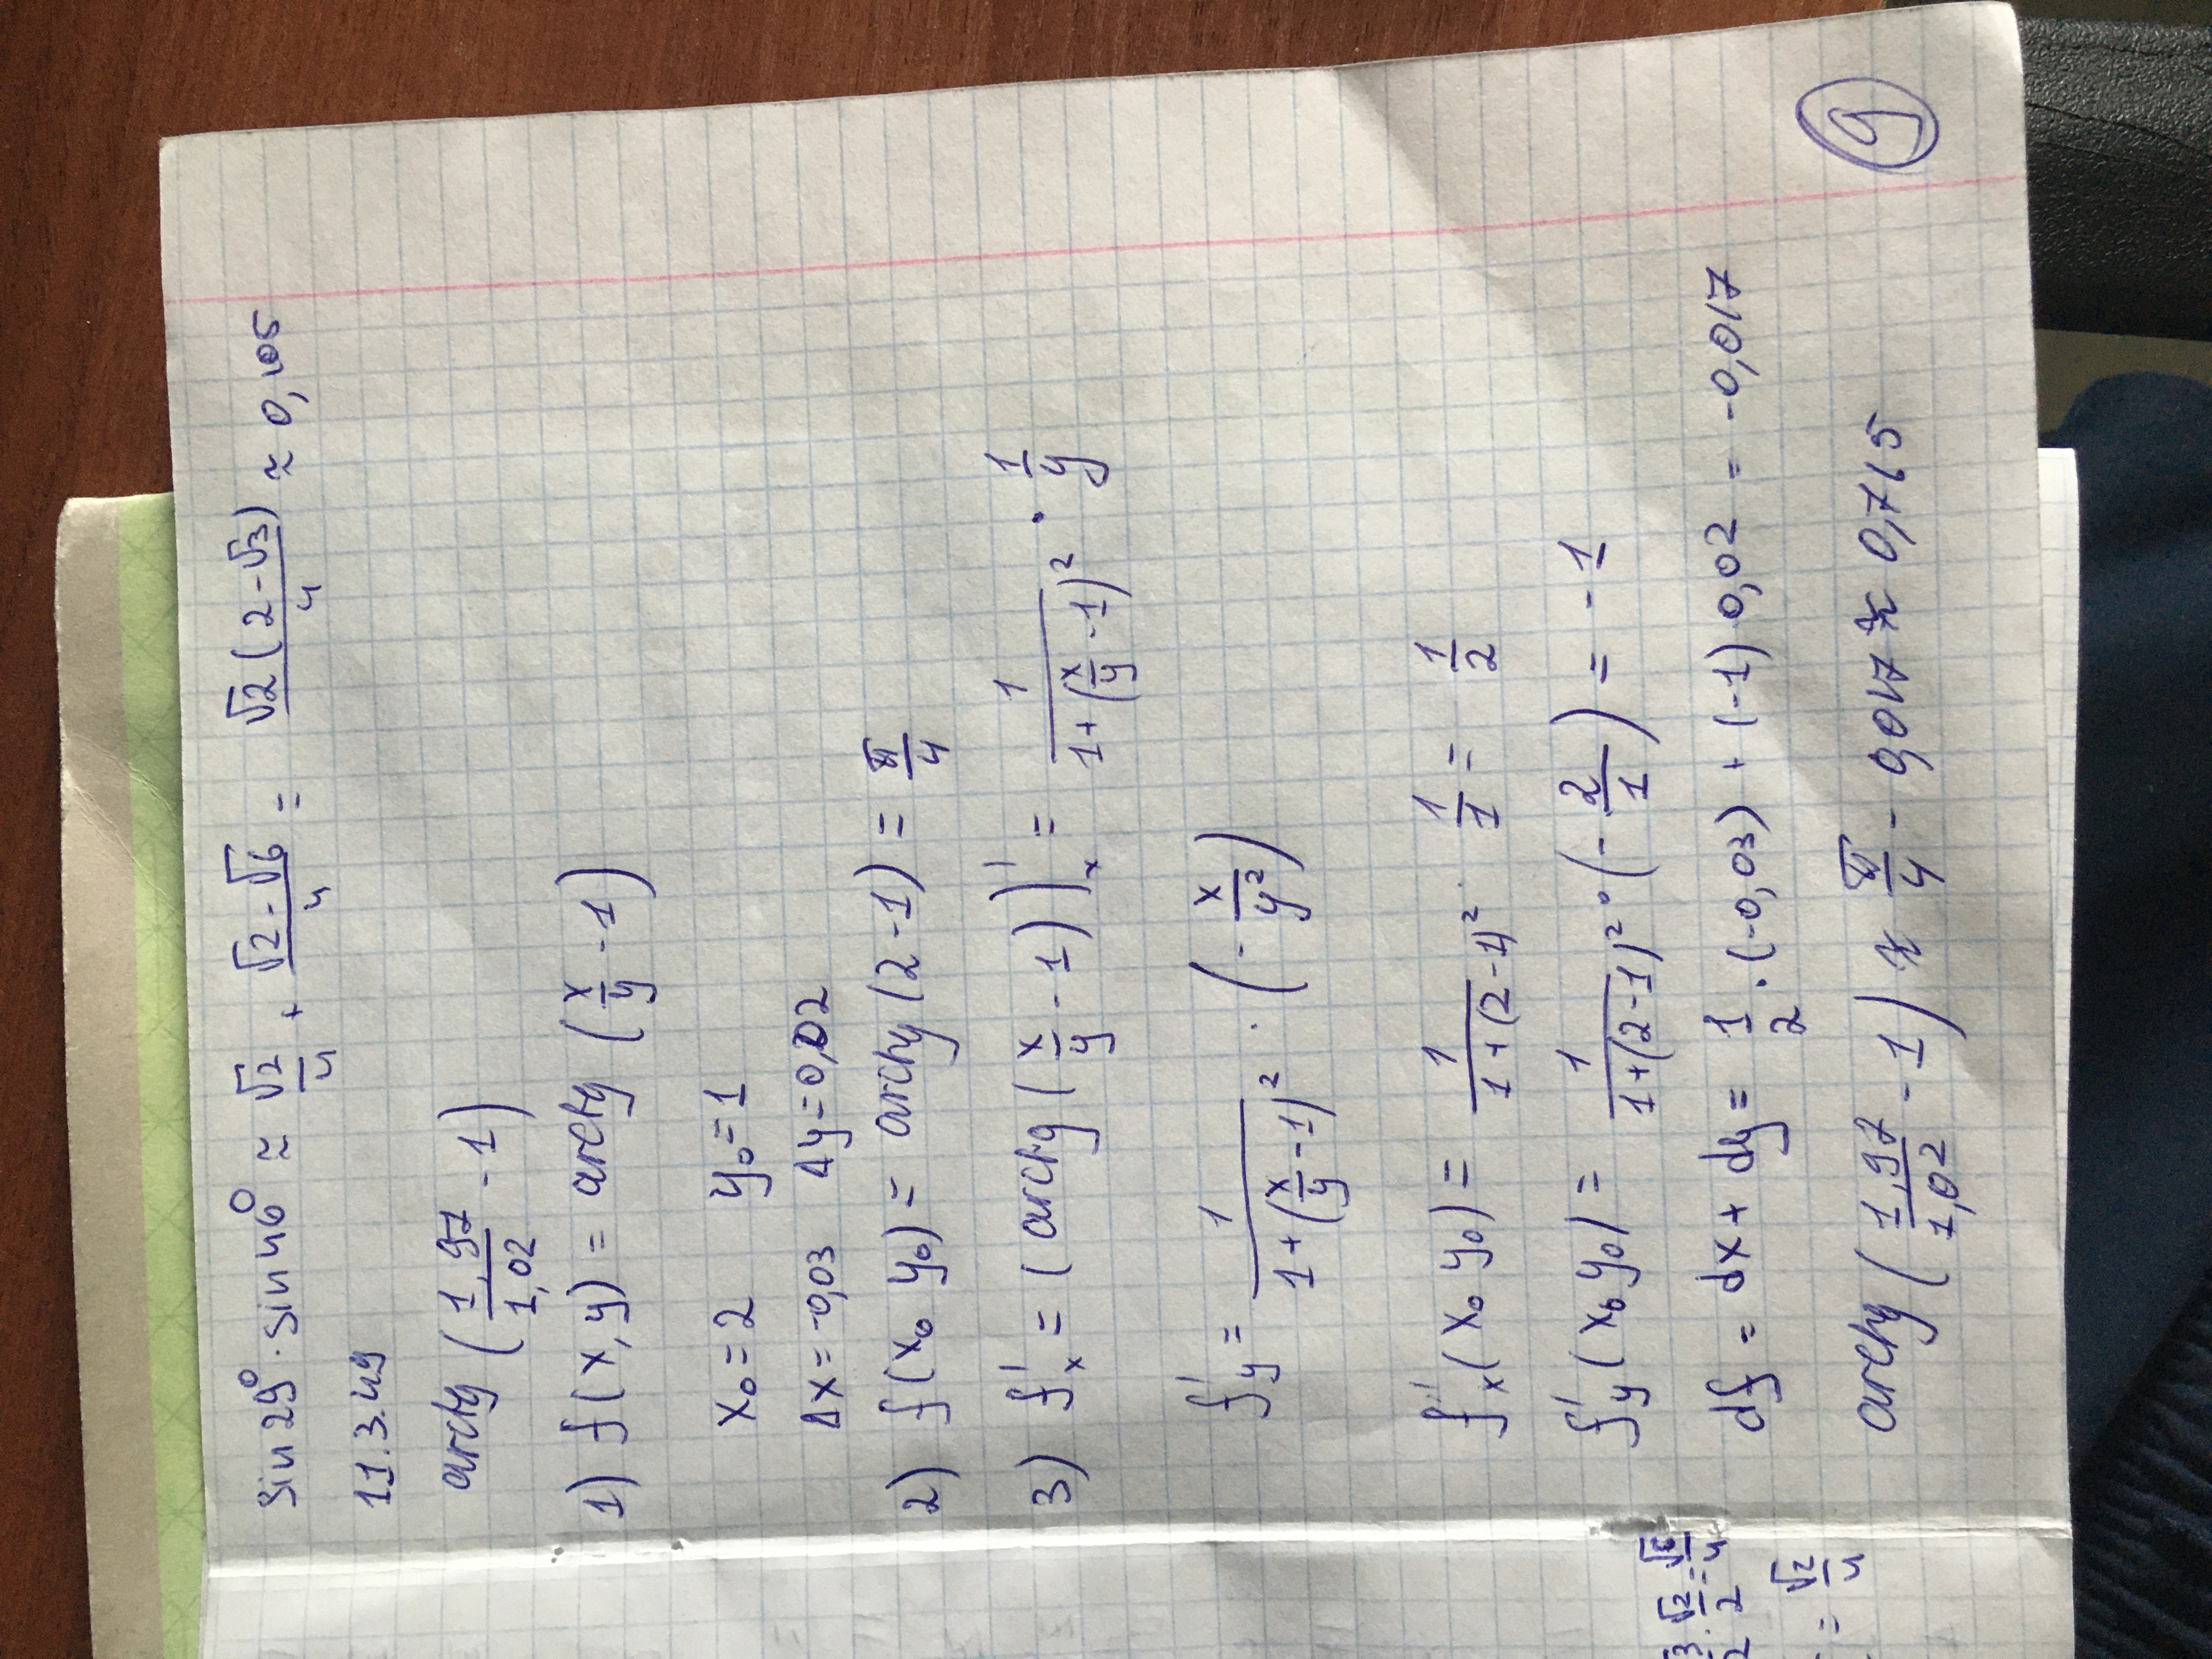 sin 29° · sin 46° ≈ √2/4 + (√2 - √6)/4 = √2(2 - √3)/4 ≈ 0,105
11.3.49
arctg (1,97/1,02 - 1)
1) f(x, y) = arctg (x/y - 1)
x₀ = 2 y₀ = 1
Δx = -0,03 Δy = 0,02
2) f(x₀ y₀) = arctg (2 - 1) = π/4
3) f'ₓ = (arctg (x/y - 1))'ₓ = 1/(1 + (x/y - 1)²) · 1/y
f'y = 1/(1 + (x/y - 1)²) · (- x/y²)
f'ₓ(x₀ y₀) = 1/(1 + (2 - 1)²) · 1/1 = 1/2
f'y(x₀ y₀) = 1/(1 + (2 - 1)²) · (- 2/1) = - 1
df = dx + dy = 1/2 · (-0,03) + (-1) 0,02 = -0,017
arctg (1,97/1,02 - 1) ≈ π/4 - 0,017 ≈ 0,765
9
= √2/4